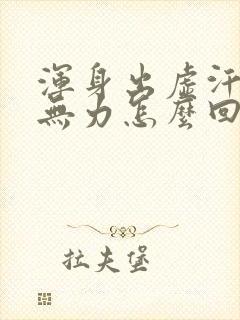 渾身出虛汗
無力怎麼回
拉夫堡